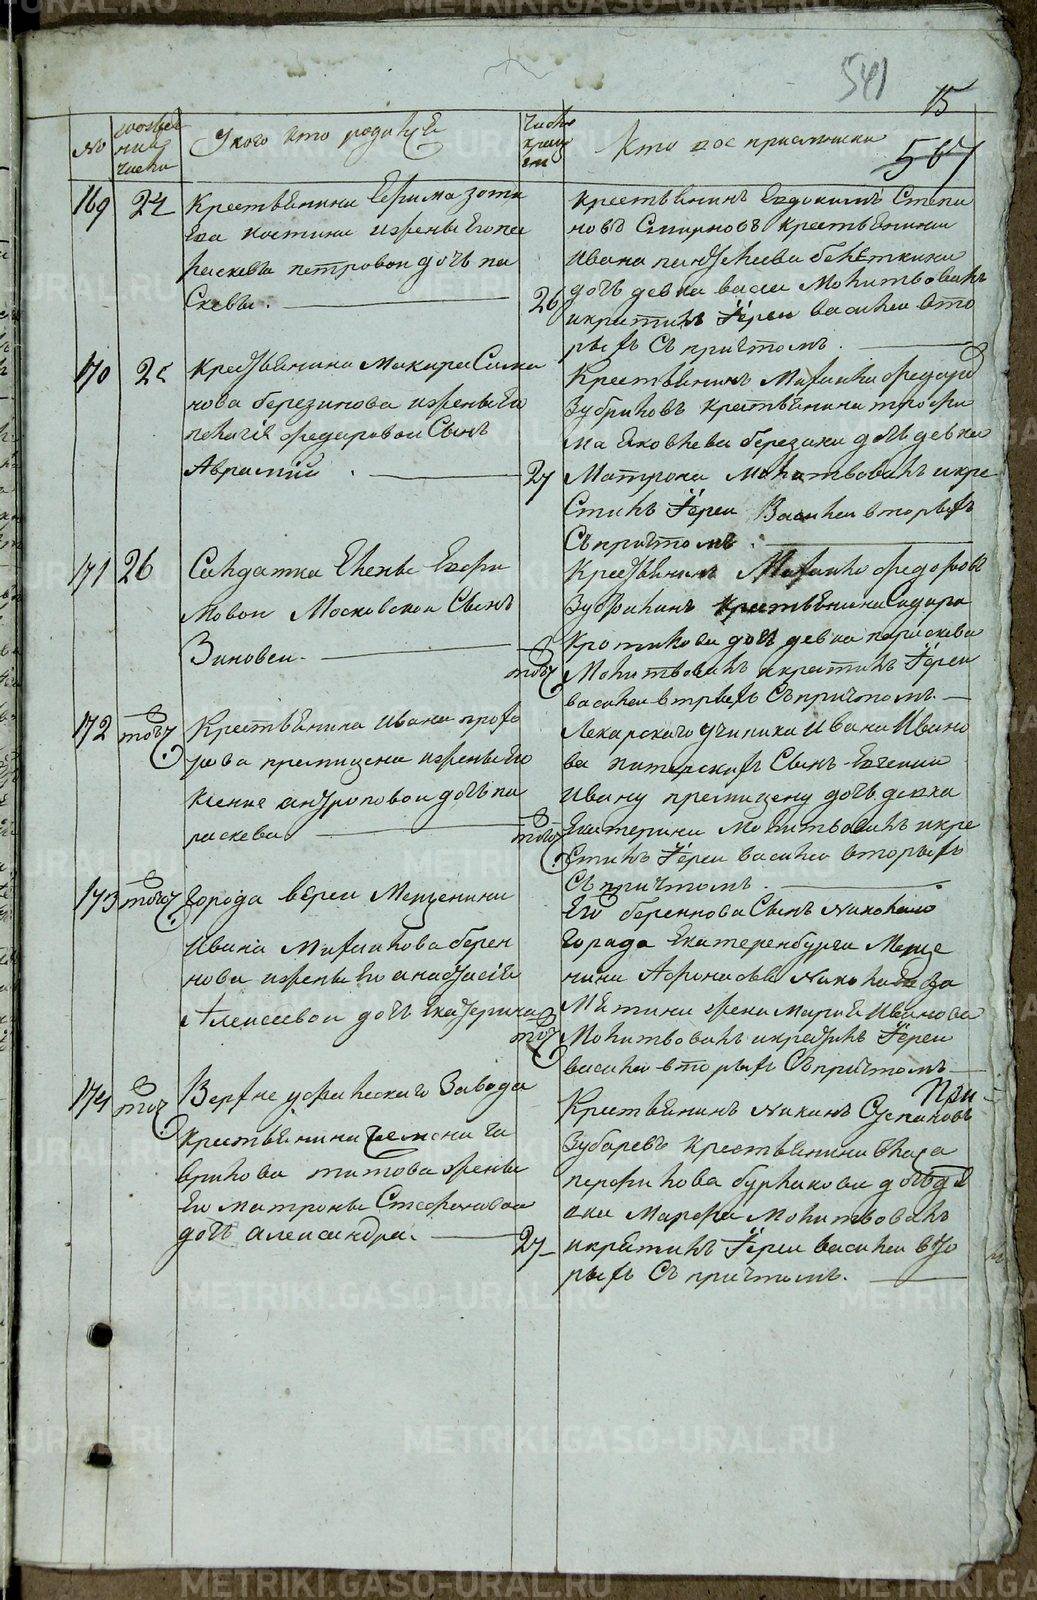 541
15
507
No
рожде
ния
числа
У кого кто родился
Число
креще
ния
Кто воспринимали
169
24
Крестьянина Ефима Зоти
ева Костина и жены его па
раскевы петровой дочь па
скевы.
26
крестьянинъ Евдокимъ Степа
новъ Смирновъ крестьянина
Ивана
дочь девка васса Молитвовалъ
и крстилъ Іерей василей вто
рыхъ Съ причтомъ.
170
25
Крестьянина Макара Сима
нова березинова и жены его
пелагіи федоровой Сынъ
Аврамій
27
Крестьянинъ Михаило федоро
Зубриловъ крестьянина трофи
ма Яковлева березина дочь девка
Матрона Молитвовалъ и кре
Стилъ Іерей Василей вторыхъ
Съ причтомъ.
171
26
Салдатки Елены Ефи
мовой Московской Сынъ
Зиновей.
тогоч
Крестьянинъ Михаило федоровъ
крестьянина Сидора
Кротикова дочь девка параскева
Молитвовалъ и крстилъ Іерей
василей втрыхъ Съ причтомъ
172
тогоч
Крестьянина Ивана профо
рова премицена и жены его
Ксение андроповой дочь па
раскева
тогоч
Лекарского ученика Ивана Ивано
ва питерскихъ Сынъ Евгений
Ивану премицену дочь девка
Екатерина Молитвовалъ и кре
Стилъ Іерей василей вторыхъ
Съ причтомъ.
173
тогоч
Города вереи Мещенина
Ивана Михаилова берен
нова и жены его анастасіи
Алексеевой дочь Екатерина
тогоч
Его береннова Сынъ Николаи
Города Екатеренбурга Меще
нина Афонасья Николаева За
Мятина жена Марья Иванова
Молитвовалъ и крстилъ Іерей
василей вторыхъ Съ причтомъ
174
тогоч
Верхнеуфалейского Завода
Крестьянина Семена га
врилова титова жены
его матроны Стефановой
дочь александра.
27
При
Крестьянинъ Никинъ Степановъ
Зубаревъ крестьянина власа
перфилова бурлакова дочь де
вка Марфа Молитвовалъ
и крстилъ Іерей василей вто
рыхъ Съ причтомъ.
METRIKI.GASO-URAL.RU